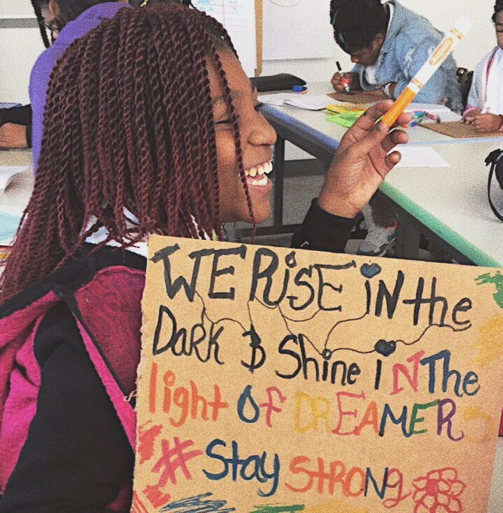 WE RISE iN the
DARK & Shine IN The
light OF DREAMER
# Stay STRONg